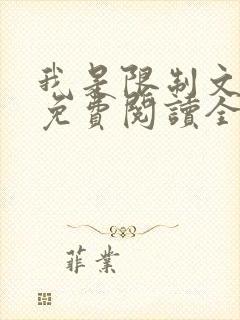 我是限制文
免費閱讀全
菲業